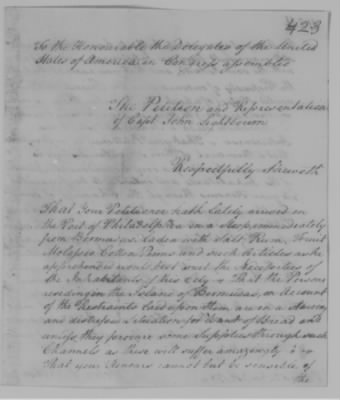 423
To the Honourable the Delegates of the United
States of America in Congress assembled
The Petition and Representation
of Capt John
Respectfully Sheweth
That Your Petitioner hath lately arrived in
the Port of Philadelphia in a Sloop immediately
from Bermudas. Laden with Salt Rum, Fruit
Molasses Cotton and such Articles as he
apprehended would best suit the Necessities of
the Inhabitants of this City That the Persons
residing on the Island of Bermudas, on Account
of the Restraints laid upon them are in a
and distressed Situation for Want of Bread and
unless they procure some Supplies through such
Channels as these will suffer amazingly
That your Honours cannot but be sensible of
the